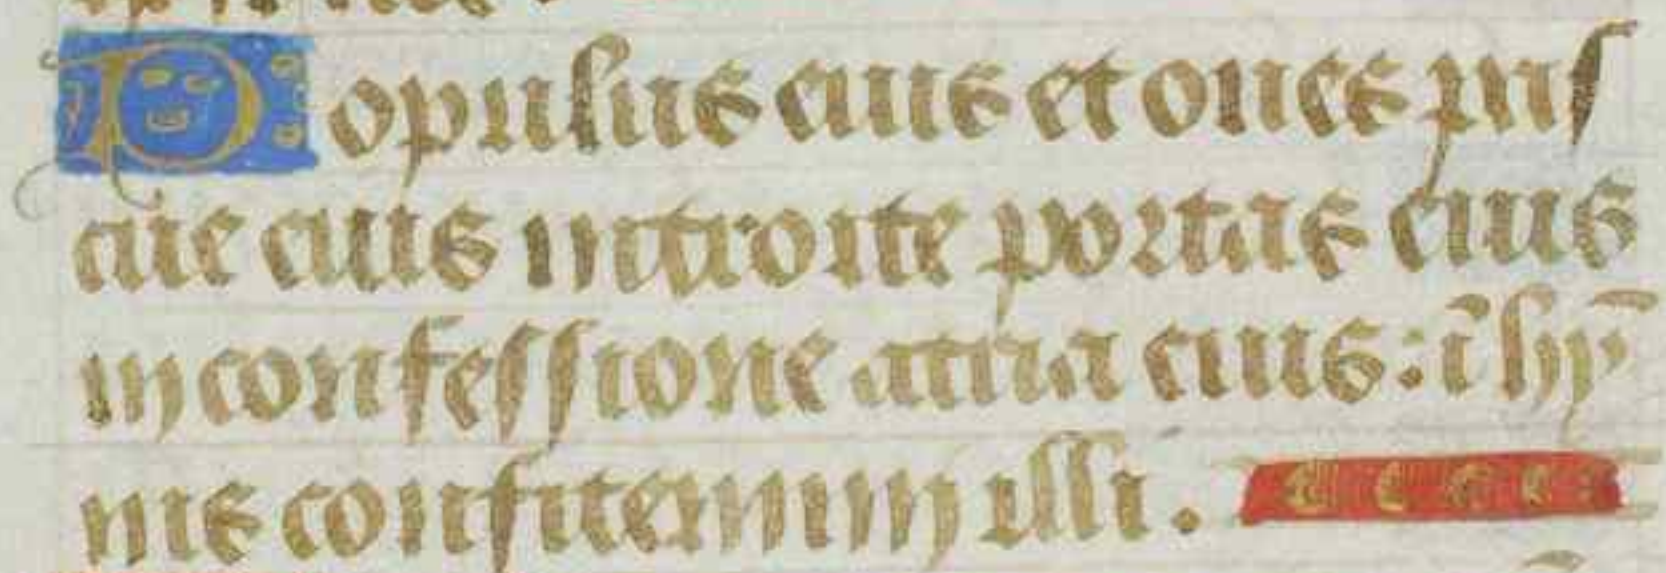 Populus eius et oues pas
cue eius introite portas eius
in confessione atria eius: i hy̅
nis confitemini illi.